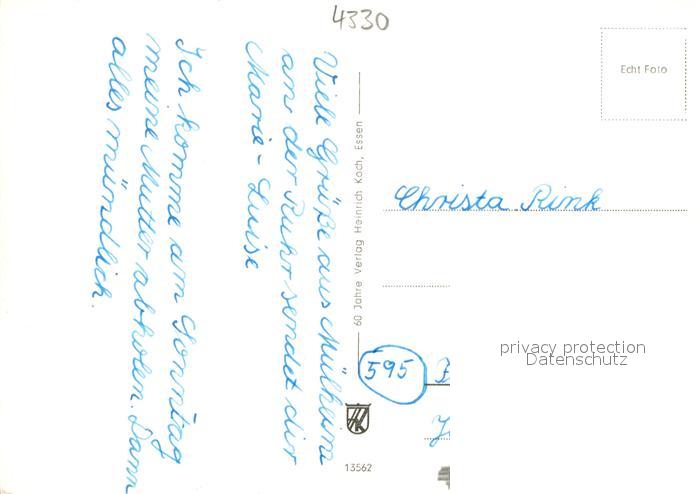 4330
Viele Grüße aus Mülheim
an der Ruhr sendet dir
Marie-Luise
Ich komme am Sonntag
meine Mutter abholen. Dann
alles mündlich.
60 Jahre Verlag Heinrich Koch, Essen
Echt Foto
Christa Rink
privacy protection
Datenschutz
595
13562